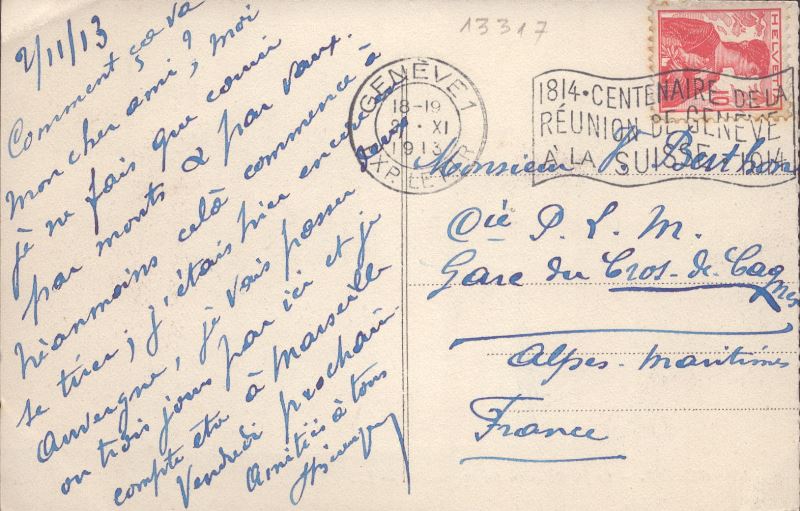 13317
2/11/13
Comment ça va
mon cher ami ? moi
je ne fais que courir
par monts & par vaux.
Néanmoins celà commence à
se tirer ; j'étais hier encore en
Auvergne, je vais passer deux
ou trois jours par ici et je
compte être à Marseille
Vendredi prochain.
Amitiés à tous
GENÈVE 1
18-19
2. XI
1913
EXP. LETTR.
HELVETIA
10
1814 • CENTENAIRE DE LA
RÉUNION DE GENÈVE
A LA SUISSE • 1914
Monsieur J. Berthon
Cie P. L. M.
Gare du Cros-de-Cagnes
Alpes-Maritimes
France